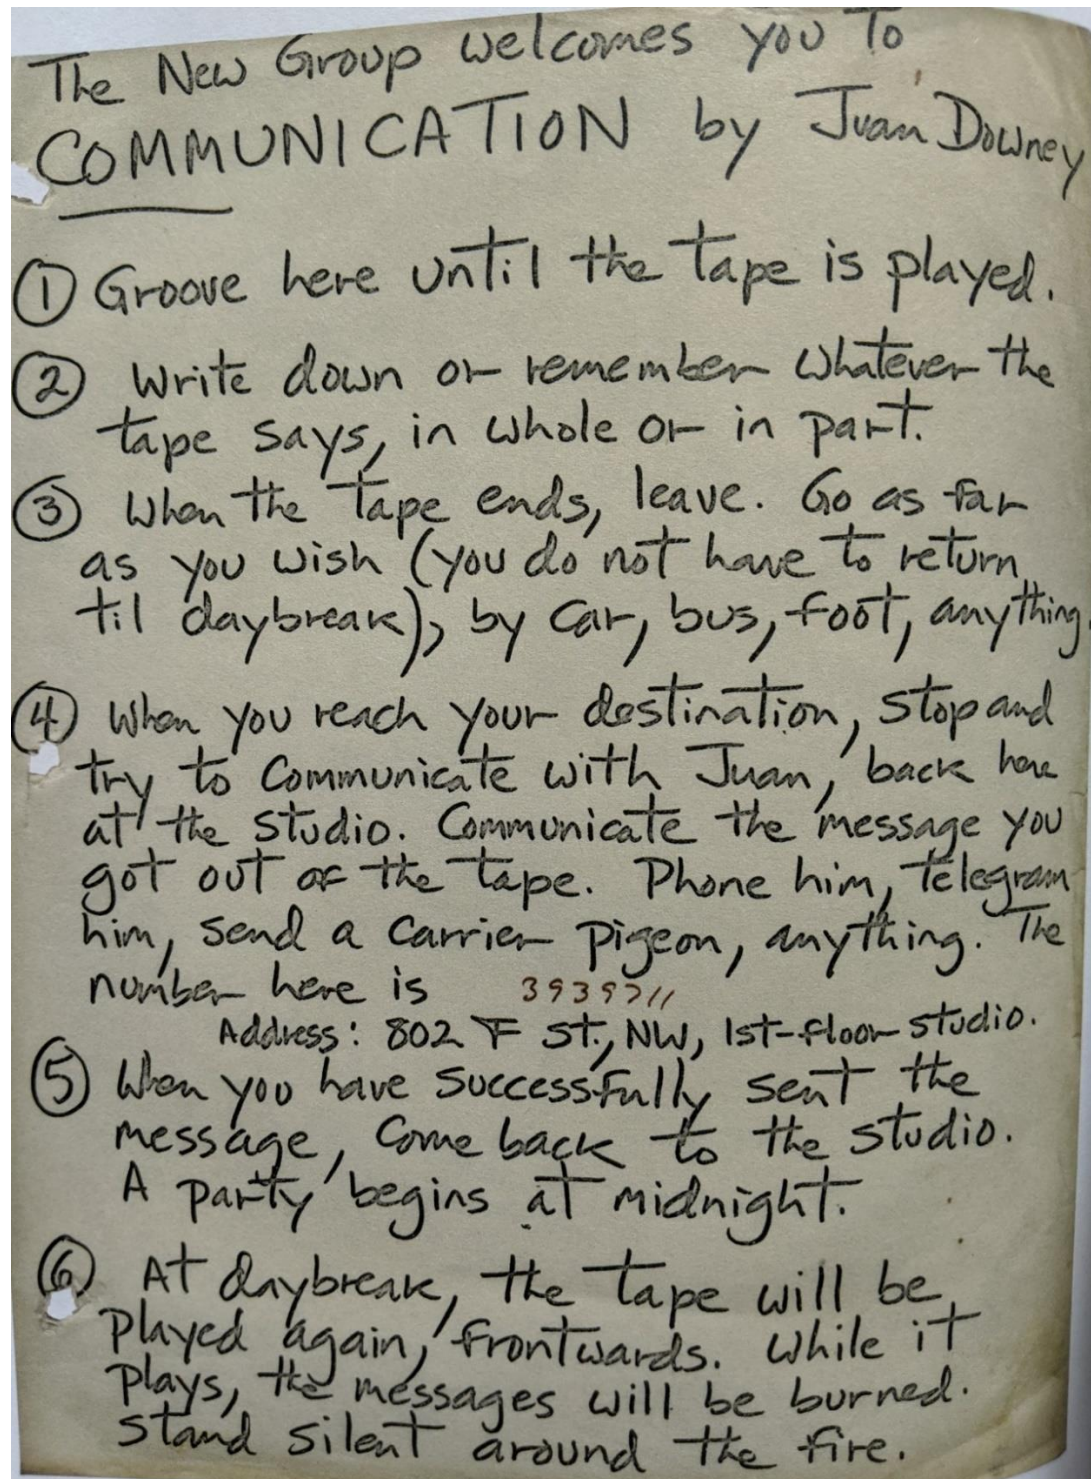 The New Group welcomes you to
COMMUNICATION by Juan Downey
① Groove here until the tape is played.
② Write down or remember whatever the
tape says, in whole or in part.
③ When the tape ends, leave. Go as far
as you wish (you do not have to return
til daybreak), by car, bus, foot, anything.
④ When you reach your destination, stop and
try to communicate with Juan, back here
at the studio. Communicate the message you
got out of the tape. Phone him, telegram
him, send a carrier pigeon, anything. The
number here is 3939711
Address: 802 F St., NW, 1st-floor studio.
⑤ When you have successfully sent the
message, come back to the studio.
A party begins at midnight.
⑥ At daybreak, the tape will be
played again, frontwards. While it
plays, the messages will be burned.
Stand silent around the fire.